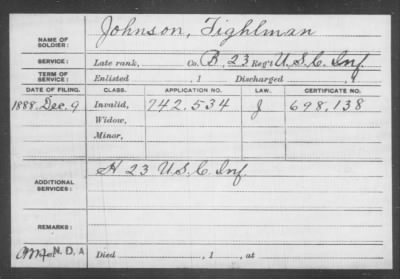 NAME OF SOLDIER: Johnson, Tighlman
SERVICE: Late rank, Co. B, 23 Reg't U.S.C. Inf
TERM OF SERVICE: Enlisted , 1 Discharged , 1
DATE OF FILING. CLASS. APPLICATION NO. LAW. CERTIFICATE NO.
1888 Dec. 9 Invalid, 742.534 J 698,138
Widow,
Minor,
ADDITIONAL SERVICES: H 23 U.S.C. Inf
REMARKS:
N. D. A Died , 1 , at